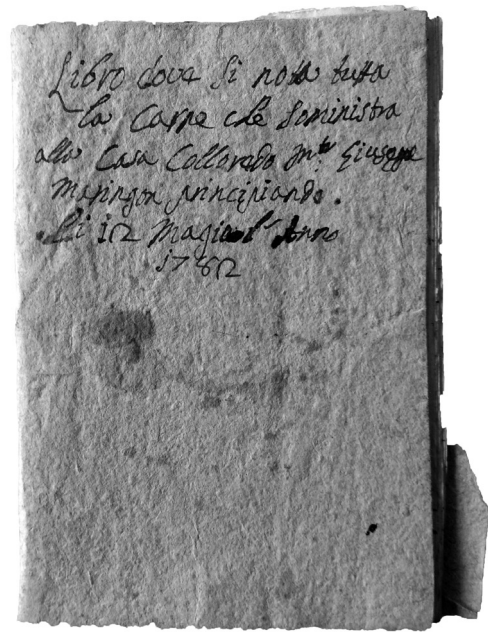 Libro dove si nota tutta
la Carne che Soministra
alla Casa Colloredo Mr. Giuseppe
principiando.
Li 12 Magio l'Anno
1782